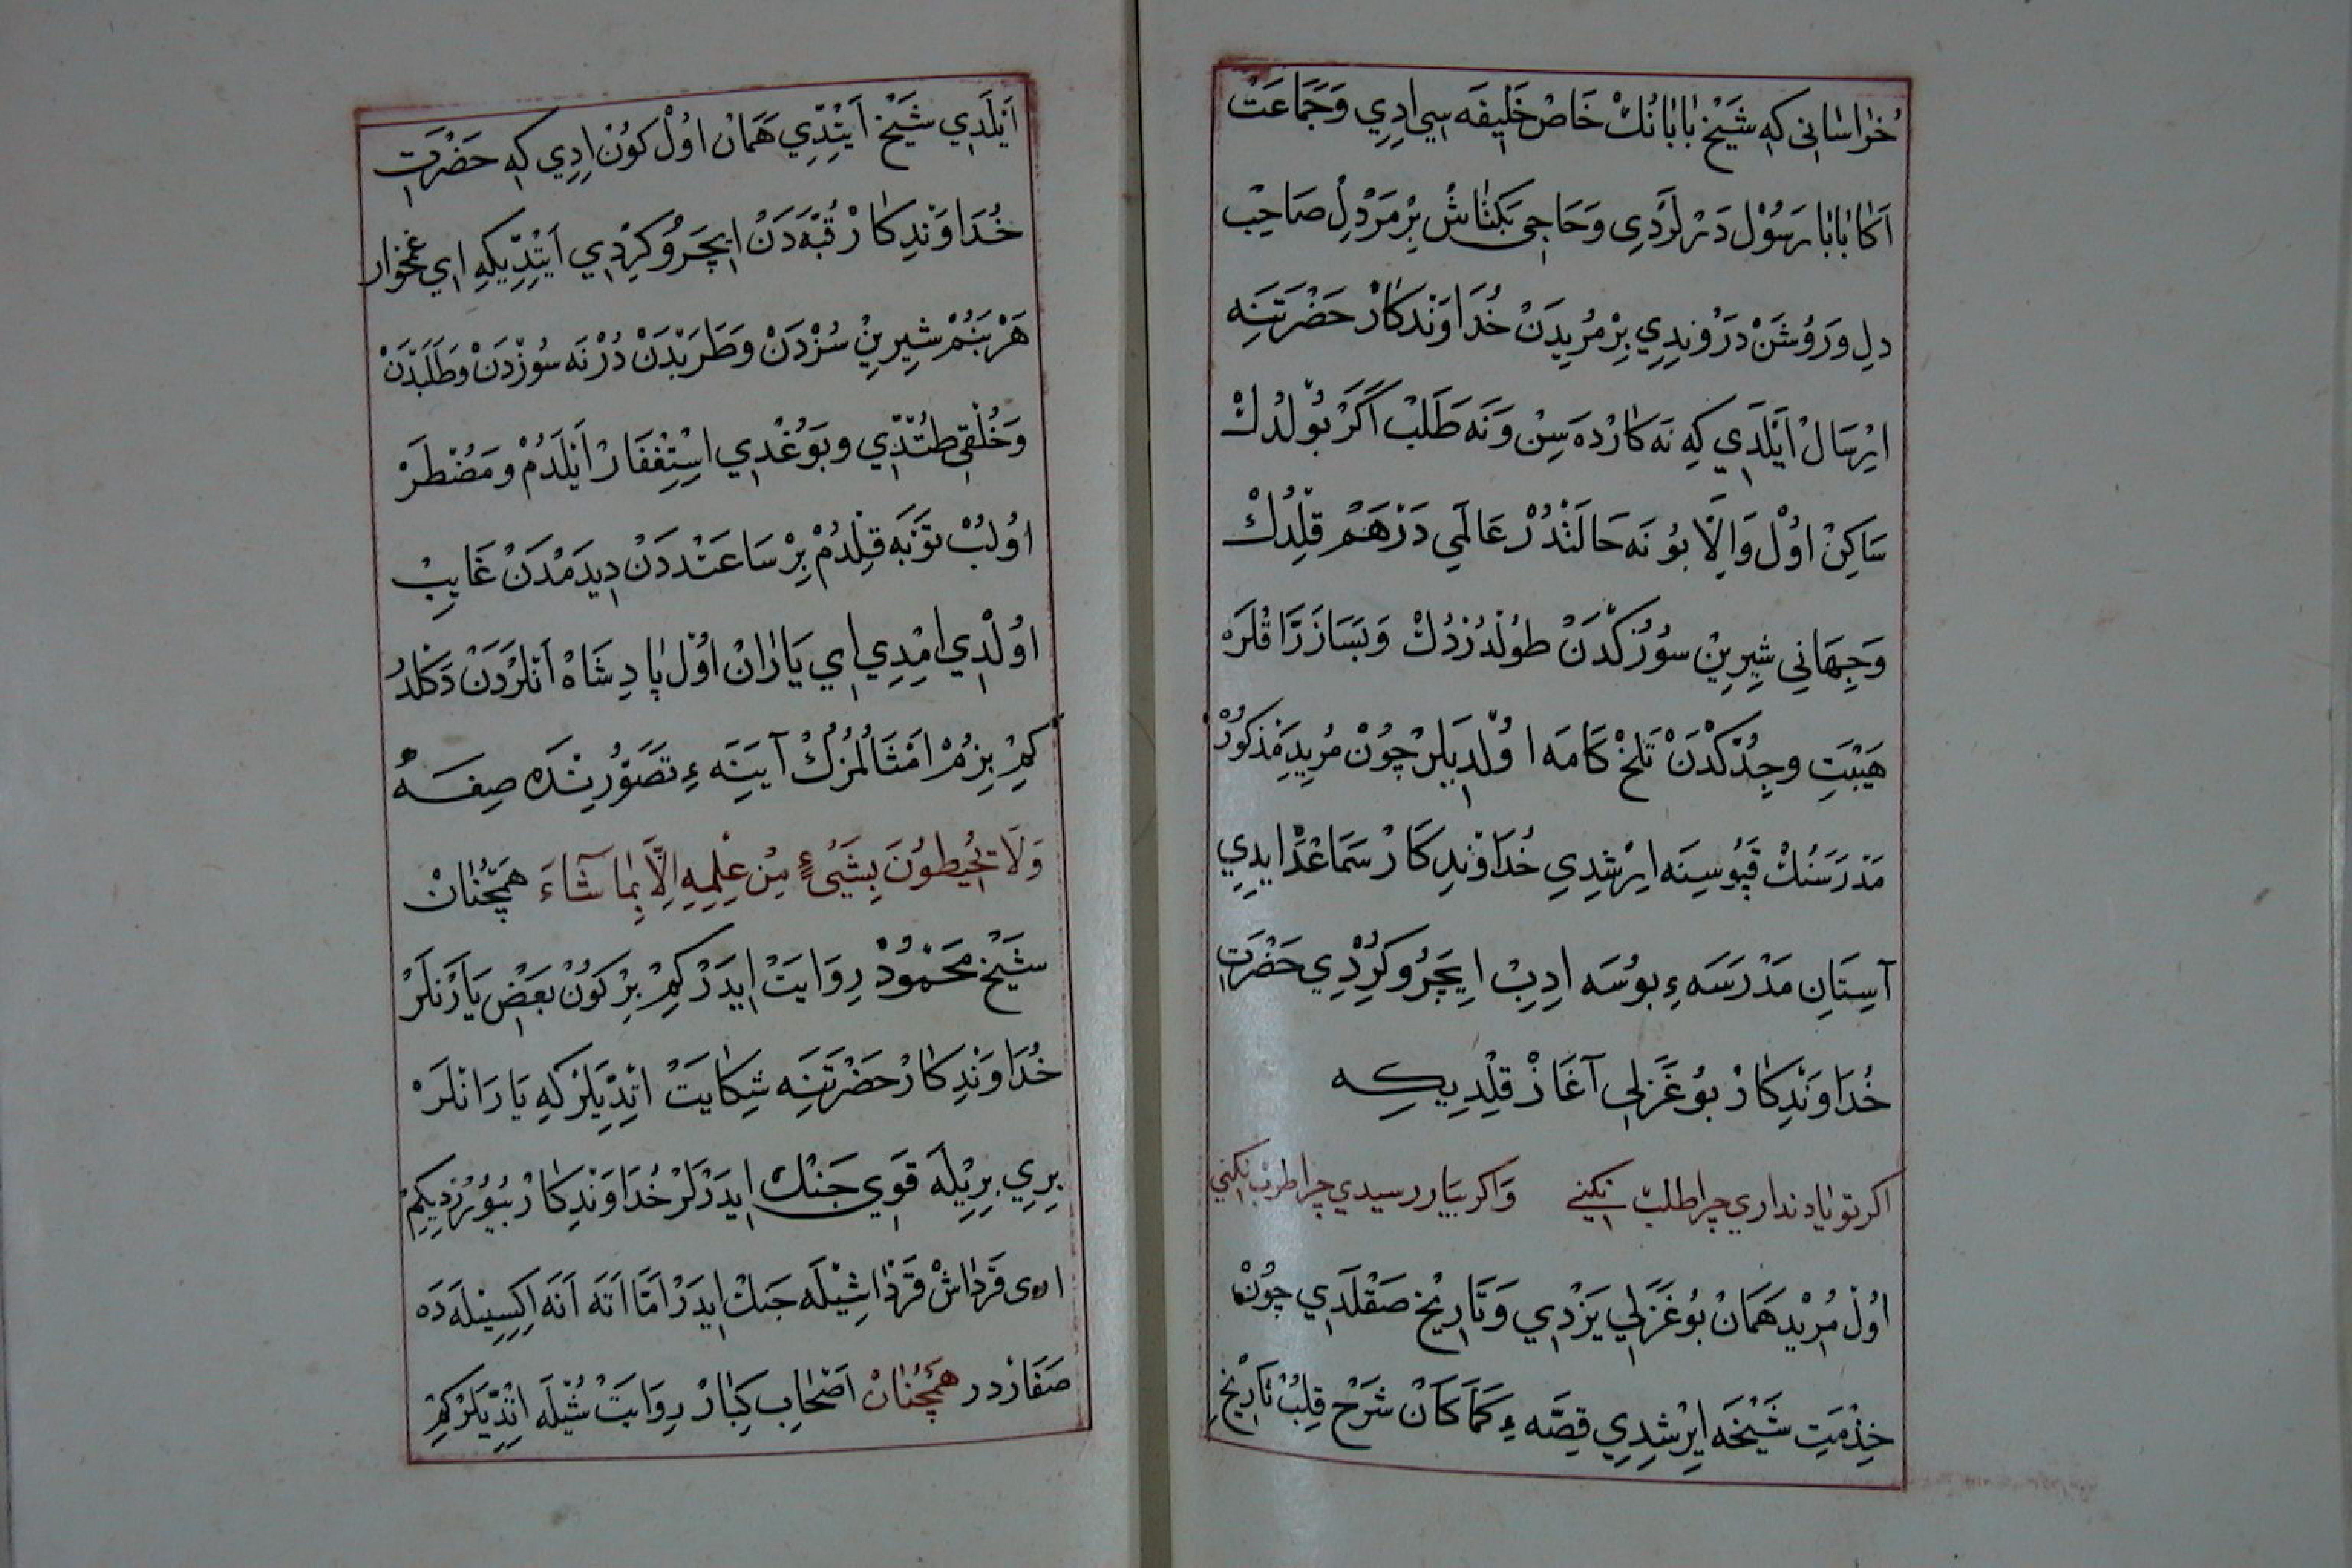 خُرَاسَانِى كِه شَيْخ بَابَانُكْ خَاصْ خَلِيفَه سِيِ ادِرِي وَجَمَاعَتْ
اَكَا بَابَا رَسُوْل دَرْلَرْدِى وَحَاجِى بَكْتَاشْ بِرْ مَرْدِلْ صَاحِبْ
دِلِ وَرَوُشَنْ دَرُونِدِي بِرْ مُرِيدَنْ خُدَاوَنْدِكَارْ حَضْرَتِنَه
اِرْسَالْ اَيْلَدِي كِه نَه كَارْدَه سِنْ وَنَه طَلَبْ اَكَرْ بُوْلدُكْ
سَاكِنْ اوُلْ وَاِلَّا بُو نَه حَالَتْدُرْ عَالَمِي دَرْهَمْ قِلْدِكْ
وَجِهَانِي شِيرِينْ سُوزُكْدَنْ طُولْدُرْدُكْ وَبَسَا زَرَّاقْلَرَه
هَيْبَتِ وجِدُّكْدَنْ تَلخْ كَامَه اوُلْدِيلَرْ چُونْ مُرِيدِ مَذْكُورْ
مَدْرَسَنُكْ قَپُوسِنَه اِرْشِدِي خُدَاوَنْدِكَارْ سَمَاعْدَا ايدِي
آسِتَانِ مَدْرَسَهءِ بوُسَه ادِبْ ايچَرُو كِرْدِي حَضْرَتِ
خُدَاوَنْدِكَارْ بوُ غَزَلِى آغَازْ قِلْدِيكِه
اكر تو يادنداري چرا طلب نكني وَاكر بيَار رسيدي چرا طرب نكني
اوُلْ مُرِيْد هَمَانْ بُو غَزَلِي يَزْدِي وَتَارِيْخ صَقْلَدِي چُونْ
خِذْمَتِ شَيْخَه اِيرْشِدِي قِصَّهءِ كَمَا كَانْ شَرْح قِلُبْ تَارِيْخِ
اَيْلَدِي شَيْخ اَيْتِدِي هَمَانْ اوُلْ كُونْ ادِي كِه حَضْرَتِ
خُدَاوَنْدِكَارْ قُبَّهدَنْ ايچَرُو كِرْدِي اَيْتْدِيكِه ايِ غمخوار
هَرْ بَنُمْ شِيرِينْ سُزْدَنْ وَطَرَبْدَنْ دُرْ نَه سُوزْدَنْ وطَلَبْدَنْ
وَحُلْقِى طُتْدِّي وبَوُغْدِي اسْتِغِفَارْ اَيْلَدُمْ ومُضْطَرْ
اوُلُبْ تَوْبَه قِلْدُمْ بِرْ سَاعَتْدَدَنْ دِيدَمْدَنْ غَايِبْ
اوُلْدِي امْدِي ايِ يَارَانْ اوُلْ پَادِشَاهْ اَنْلَرْدَنْ دَكُلدُرْ
كِمْ بِزُمْ امْثَالُمُزُكْ آيِنَهءِ تَصَوُّرِنْدَه صِغَه
وَلَا يُحِيطُونَ بِشَىْءٍ مِنْ عِلْمِهِ اِلَّا بِمَا شَاءَ هَمْچُنَانْ
شَيْخ مَحْمُودْ رِوَايَتْ ايدَرْ كِمْ بِرْ كُونْ بَعْضِ يَارَنْلَرْ
خُدَاوَنْدِكَارْ حَضْرَتِنَه شِكَايَتْ اتْدِيلَرْكِه يَارَانْلَرْ
بِرِي بِرِيْلَه قَوِي جَنْكْ ايدَرْلَرْ خُدَاوَنْدِكَارْ بُيُورْدِيكِمْ
قَرْدَاشْ قَرْدَاشِيْلَه جَنْكْ ايدَرْ اَمَّا اَتَه اَنَه اِكِسِيْلَه دَه
صَفَازْدر هَمْچُنَانْ اَصْحَابِ كِبَارْ رِوَايَتْ شُيْلَه اتْدِيلَرْكِمْ